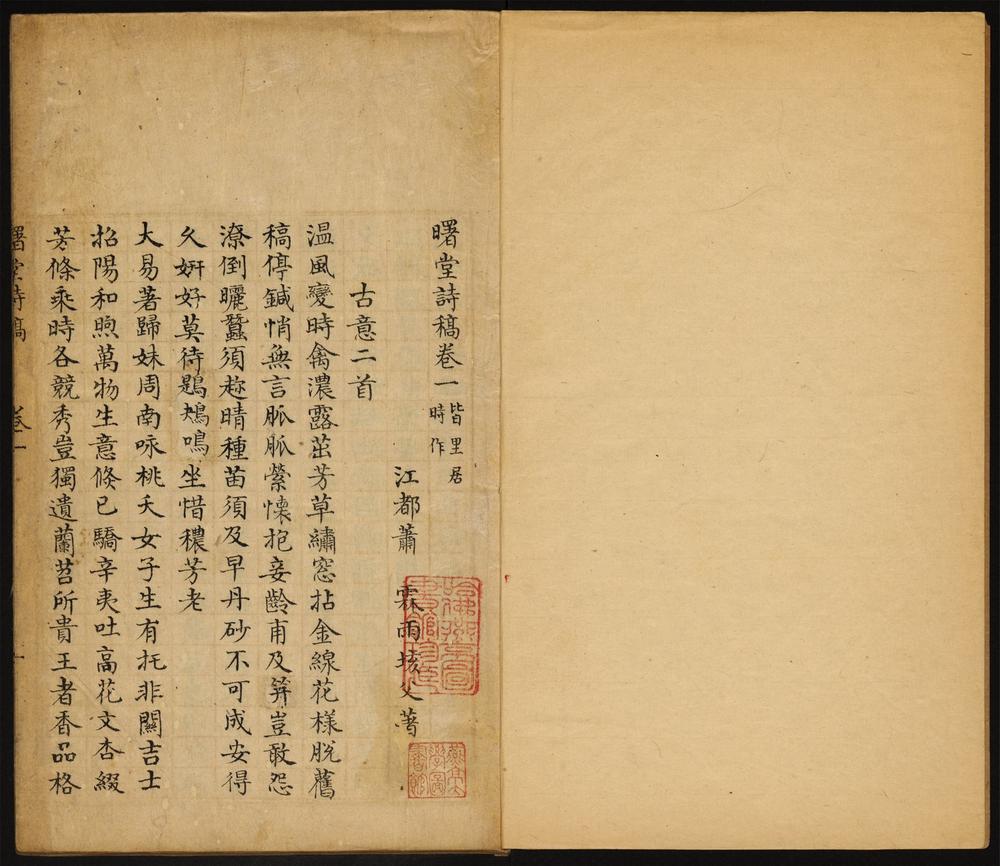 曙堂詩稿卷一 皆里居時作
江都蕭 霖雨垓父著
古意二首
温風變時禽濃露茁芳草繡窓拈金線花樣脫舊
稿停鍼悄無言脈脈縈懷抱妾齡甫及筓豈敢怨
潦倒曬蠶須趂晴種苗須及早丹砂不可成安得
久妍好莫待鶗鴂鳴坐惜穠芳老
大易著歸妹周南咏桃夭女子生有托非關吉士
招陽和煦萬物生意倐已驕辛夷吐高花文杏綴
芳條乘時各競秀豈獨遺蘭苕所貴王者香品格
曙堂詩稿 卷一 一